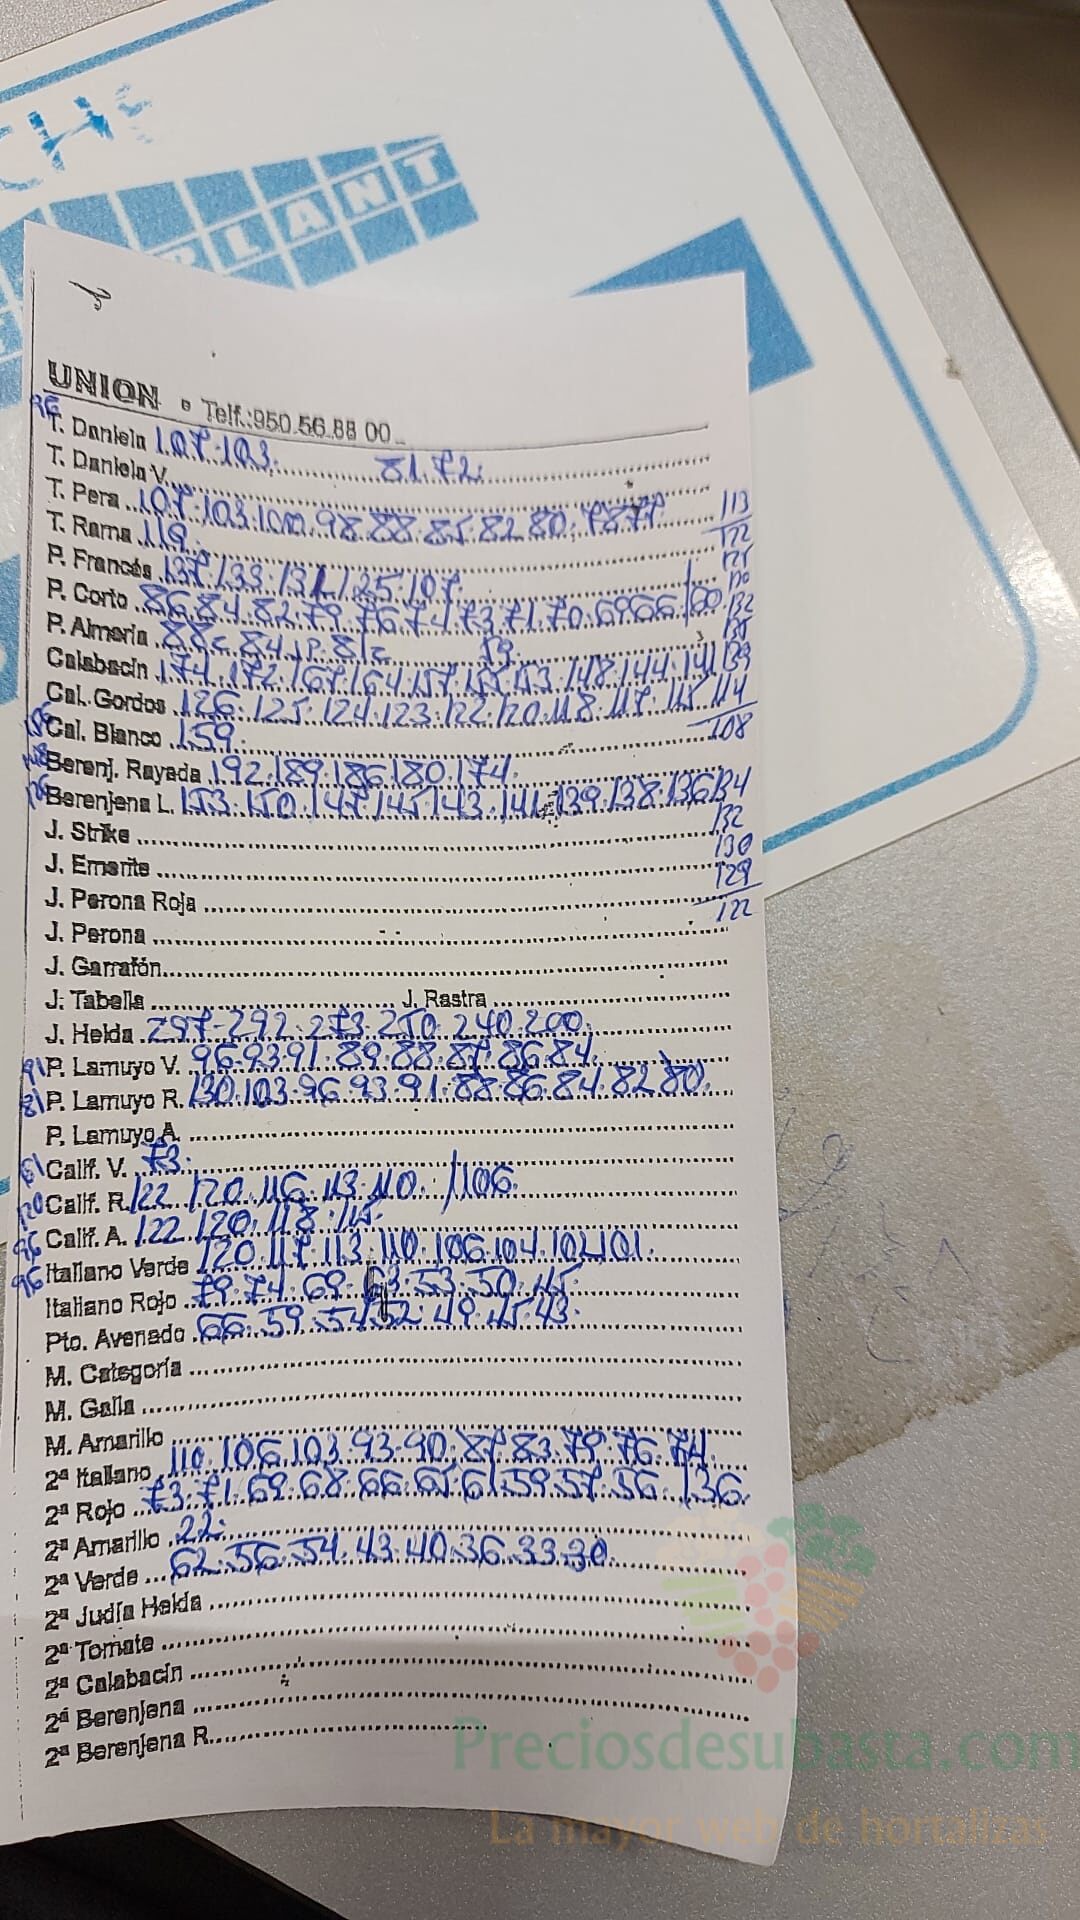 CH
PLANT
UNION • Telf.:950.56.88 00
96
T. Daniela 107.103. 81.72.
T. Daniela V.
T. Pera 107.103.100.98.88.85.82.80.78.77 113
T. Rama 119. 122
P. Francés 137.133.131.125.107 125
P. Corto 86.84.82.79.76.74.73.71.70.69.66./60. 132
P. Almería 88c 84.P.81c 59. 135
Calabacín 174.172.167.164.157.155.153.148.144.141 139
Cal. Gordos 126.125.124.123.122.120.118.117.115.114
Cal. Blanco 159. 108
Berenj. Rayada 192.189.186.180.174.
Berenjena L. 153.150.147.145.143.141.139.138.136.134
J. Strike 132
J. Emerite 130
J. Perona Roja 129
122
J. Perona
J. Garrafón
J. Tabella J. Rastra
J. Helda 297-292.273.250.240.200.
91 P. Lamuyo V. 96.93.91.89.88.87.86.84.
81 P. Lamuyo R. 130.103.96.93.91.88.86.84.82.80.
P. Lamuyo A.
Calif. V. 73.
120 Calif. R. 122.120.116.113.110. /106.
96 Calif. A. 122.120.118.115.
96 Italiano Verde 120.117.113.110.106.104.102.101.
Italiano Rojo 79.74.69.63.53.50.45
Pto. Avenado 66.59.54.52.49.45.43.
M. Categoría
M. Galia
M. Amarillo
2ª Italiano 110.106.103.93.90.87.83.79.76.74
2ª Rojo 73.71.69.68.66.65.61.59.57.56./36
2ª Amarillo 22.
2ª Verde 62.56.54.43.40.36.33.30.
2ª Judía Helda
2ª Tomate
2ª Calabacín
2ª Berenjena
2ª Berenjena R.
Preciosdesubasta.com
La mayor web de hortalizas